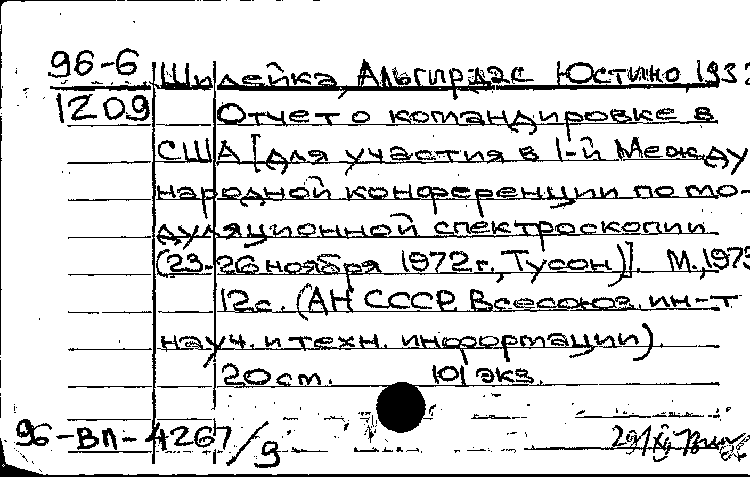 96-6 Шилейка, Альгирдас Юстино, 193
1209 Отчет о командировке в
США [для участия в 1-й Между
народной конференции по мо-
дуляционной спектроскопии
(23-26 ноября 1972 г., Тусон)]. М., 1973
12с. (АН СССР. Всесоюз. ин-т
науч. и техн. информации).
20 см. 101 экз.
96-ВЛ-4267/9